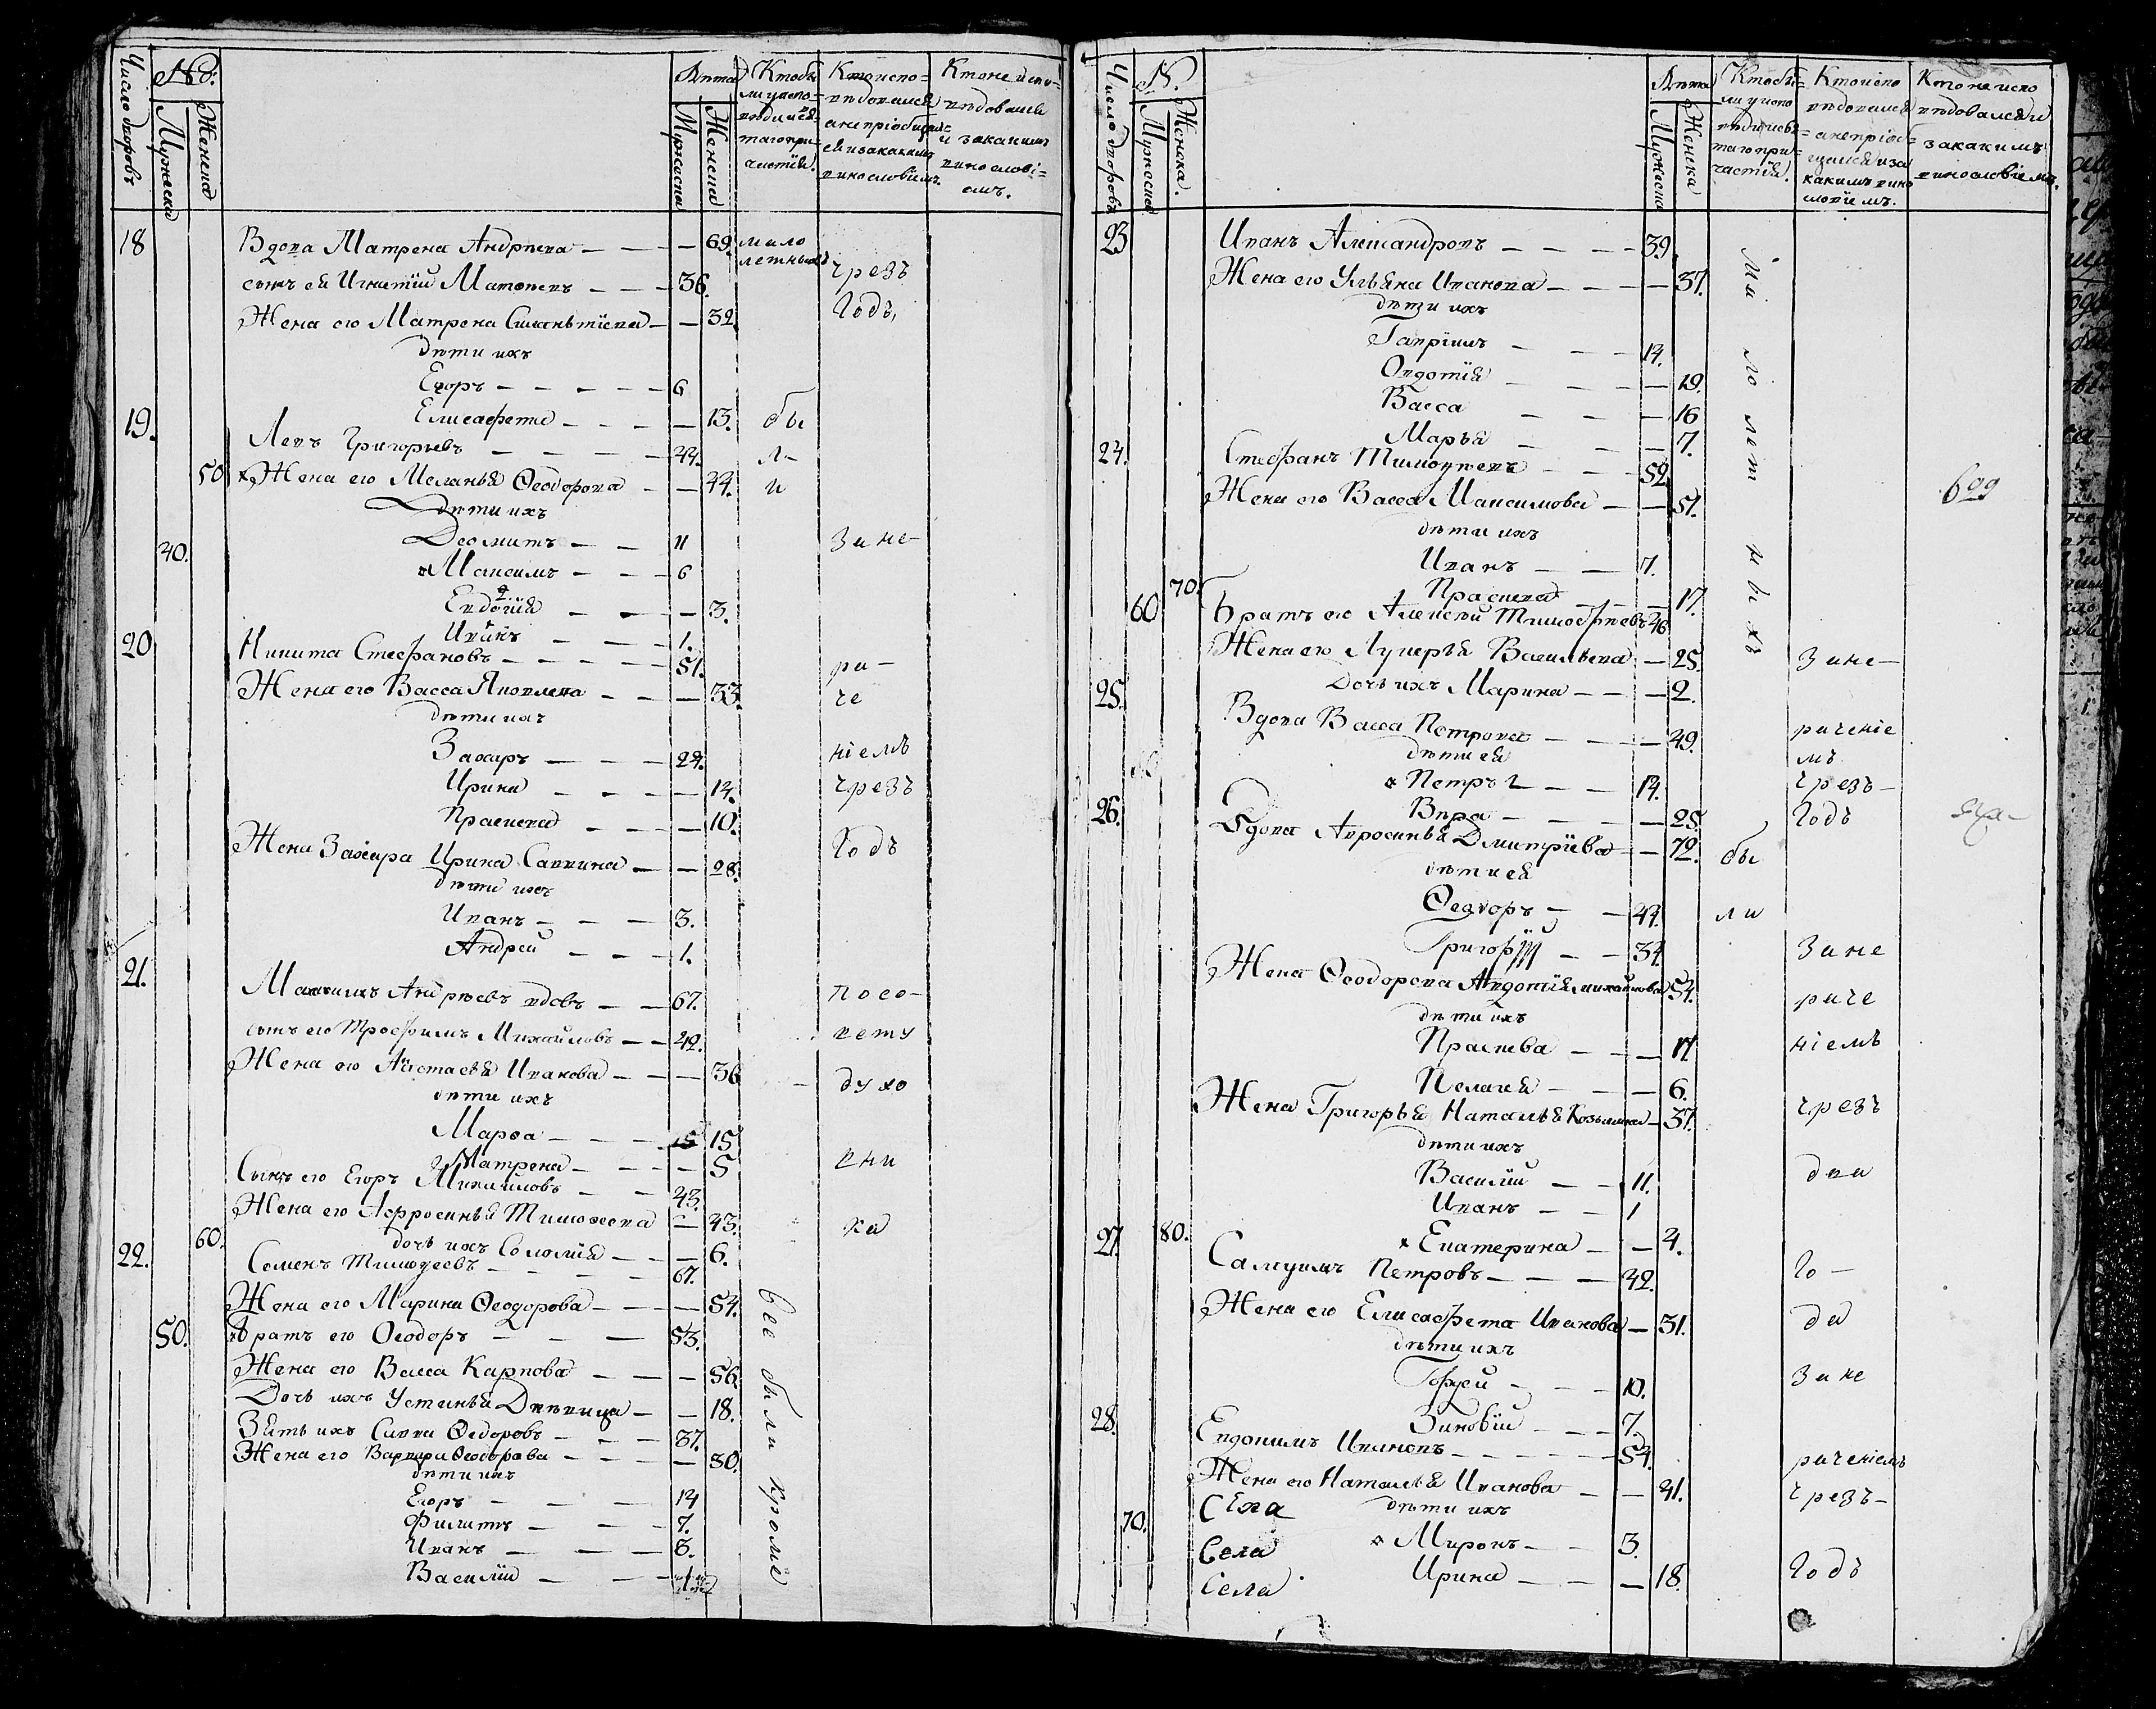 Число дворовъ
№:
Мужеска
Женска
Лѣта
Мужеска
Женска
Кто былъ у исповѣди и св. таго причастія.
Кто исповѣдался а не пріобщился и за какимъ винословіемъ.
Кто не исповѣдовался и за какимъ винословіемъ.
18 Вдова Матрена Андрѣева — — — 69. мало
летныхъ
сынъ ея Игнатій Матвѣевъ — — — 36. чрезъ
Жена его Матрена — — 32. Годъ,
дѣти ихъ
Егоръ — — — — — 6
Елисавета — — — — 13. бы
19. Левъ Григорьевъ — — — — 44. л-
50 Жена его Меланья Ѳеодорова — — 44. и
дѣти ихъ
— — 11 Зане-
40. Максимъ — — — 6
Евдотія — — — 3.
Иванъ — — — 1.
20 Никита Стефановъ — — — — — 51. ра-
Жена его Васса Яковлева — — — 33. че
дѣти ихъ
Захаръ — — — 24. ніемъ
Ирина — — — — 14. чрезъ
Праскева — — — 10.
Жена Захара Ирина Саввина — — 28. Годъ
дѣти ихъ
Иванъ — — — 3.
Андрей — — — 1.
21. Андрѣевъ вдовъ — — 67. по со-
сынъ его Трофимъ Михайловъ — — 42. вету
Жена его Иванова — — — 36 духо
дѣти ихъ
Марѳа — — — 15 15
Матрена — — — — 5 вни
Сынъ его Егоръ Михайловъ — — 43.
Жена его Афросинья Тимоѳеева — 43. ка
60. дочь ихъ Соломія — — — 6.
22. Семенъ Тимоѳеевъ — — — — 67.
Жена его Марина Ѳеодорова — — — 54.
50. Братъ его Ѳеодоръ — — — 53.
Жена его Васса Карпова — — — 56
Дочь ихъ Устинья Девица — — 18.
Зять ихъ Савва Ѳедоровъ — — — 37.
Жена его Варвара Ѳеодорова — — — — 30.
дѣти ихъ
Егоръ — — — 14
Филипъ — — — 7.
Иванъ — — — 3.
Василій — — — 1
все были кромѣ
Число дворовъ
№.
Мужеска
Женска.
Лѣта
Мужеска
Женска
Кто былъ у исповѣди и св. таго причастія.
Кто исповѣдался а не пріобщился и за какимъ винословіемъ.
Кто не исповѣдовался и за какимъ винословіемъ.
23 Иванъ Александровъ — — — — 39.
Жена его Ульяна Иванова — — — — 37.
дѣти ихъ
Гаврімъ — — — 14.
Овдотія — — — — 19.
Васса — — — 16
Марья — — — 7.
24. Стефанъ Тимоѳѣевъ — — — 52.
Жена его Васса Максимова — — 51.
дѣти ихъ
Иванъ — — 7.
70. Праскева — — — 17.
60 Братъ его Алексѣй Тимоѳѣевъ 26
Жена его Лукерья Васильева — 25. Зане-
Дочь ихъ Марина — — — 2.
25. Вдова Васса Петрова — — — 49. раченіе
дѣти ея мъ
Петръ — — 14. чрезъ-
Вѣра — — — — 25. Годъ
26. Вдова Афросинья Дмитріева — — 72. бы
дѣти ея
Ѳеодоръ — — 44. ли
Григорій — — 34. Зане
Жена Ѳеодорова Авдотія михайлова 54. раче
дѣти ихъ
Праскева — — — 17 ніемъ
Пелагія — — — 6.
Жена Григорья Наталья Козьмина — 37. чрезъ
дѣти ихъ
Василій — — 11. два
Иванъ — — 1
80. Екатерина — — 4.
27. Самуилъ Петровъ — — — 42. го-
Жена его Елисавета Иванова — 31. да
дѣти ихъ
— — — 10. Зане
Зиновій — — — 7.
28. Евдокимъ Ивановъ — — — — — 54. раченіемъ
Жена его Наталья Иванова — — 41. чрезъ-
Села дѣти ихъ
70.
Села Миронъ — — 3.
Села Ирина — — — 18. Годъ
малолетныхъ
699